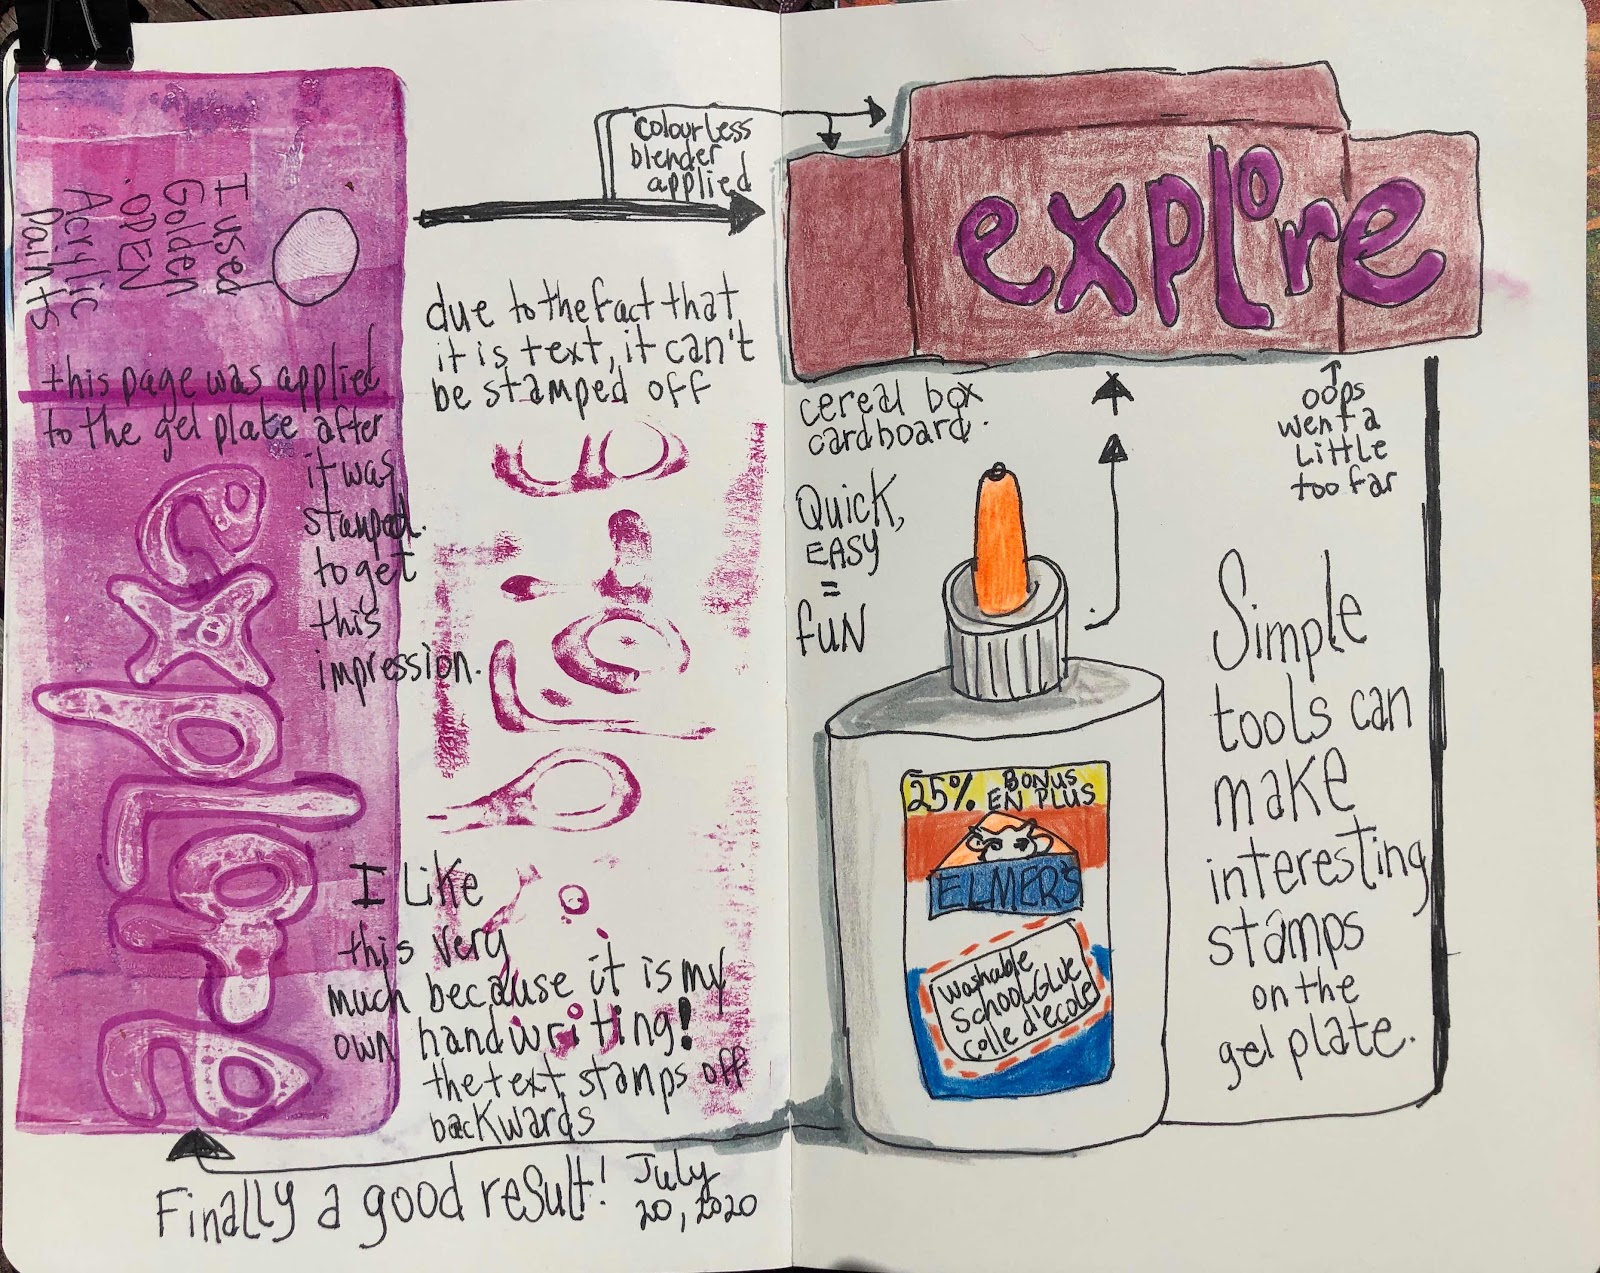 I used
Golden
OPEN
Acrylic
Paints
this page was applied
to the gel plate after
it was
stamped.
to get
this
impression.
explore
colourless
blender
applied
due to the fact that
it is text, it can't
be stamped off
I Like
this very
much because it is my
own handwriting!
the text stamps off
backwards
Finally a good result!
July
20, 2020
explore
cereal box
cardboard.
oops
went a
little
too far
Quick,
EASY
=
fUN
25% BONUS
EN PLUS
ELMER'S
Washable
School Glue
colle d'ecole
Simple
tools can
make
interesting
stamps
on the
gel plate.